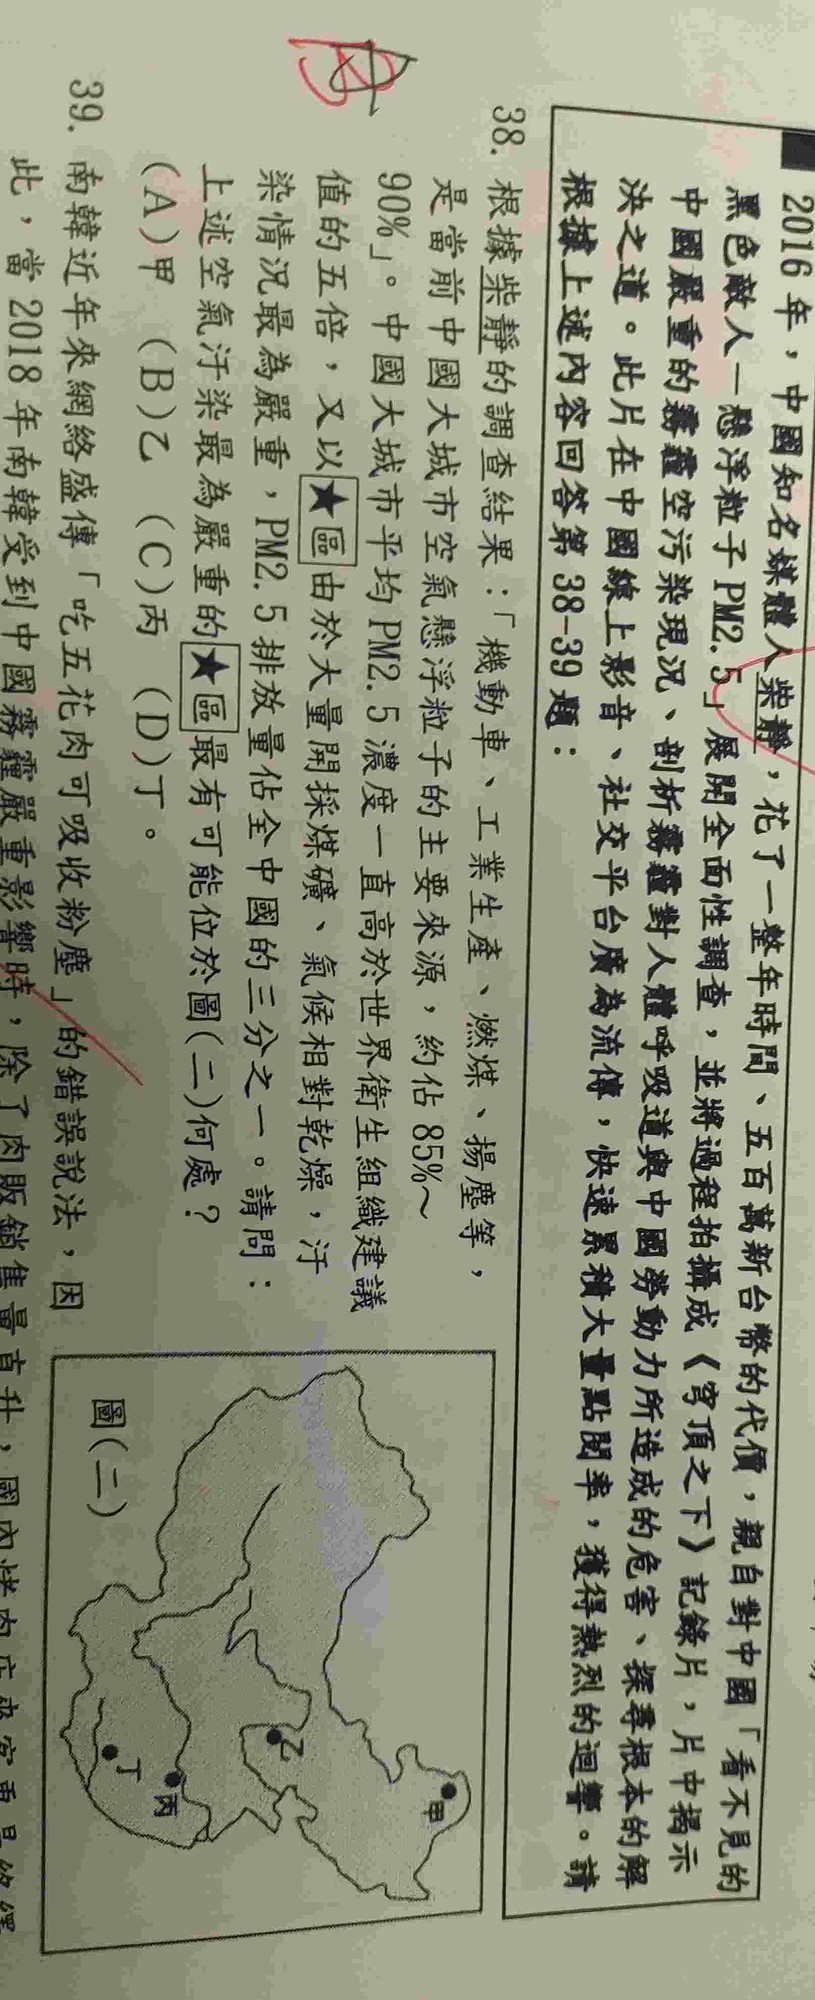 2016 年，中國知名媒體人柴靜，花了一整年時間、五百萬新台幣的代價，親自對中國「看不見的
黑色敵人—懸浮粒子 PM2.5」展開全面性調查，並將過程拍攝成《穹頂之下》記錄片，片中揭示
中國嚴重的霧霾空污染現況、剖析霧霾對人體呼吸道與中國勞動力所造成的危害、探尋根本的解
決之道。此片在中國線上影音、社交平台廣為流傳，快速累積大量點閱率，獲得熱烈的迴響。請
根據上述內容回答第 38-39 題：
38. 根據柴靜的調查結果：「機動車、工業生產、燃煤、揚塵等，
是當前中國大城市空氣懸浮粒子的主要來源，約佔 85%～
90%」。中國大城市平均 PM2.5 濃度一直高於世界衛生組織建議
值的五倍，又以★區由於大量開採煤礦、氣候相對乾燥，汙
染情況最為嚴重，PM2.5 排放量佔全中國的三分之一。請問：
上述空氣汙染最為嚴重的★區最有可能位於圖(二)何處？
(A)甲 (B)乙 (C)丙 (D)丁。
甲
乙
丙
丁
圖(二)
39. 南韓近年來網絡盛傳「吃五花肉可吸收粉塵」的錯誤說法，因
此，當 2018 年南韓受到中國霧霾嚴重影響時，除了肉販銷售量直升，國內烤肉店來客